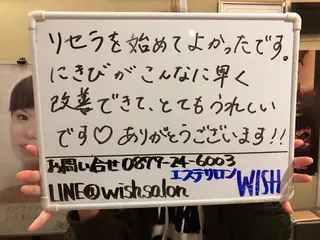 リセラを始めてよかったです。
にきびがこんなに早く
改善できて、とてもうれしい
です♡ありがとうございます!!
お問い合せ0877-24-6003
エステサロン
LINE@wishsalon WISH